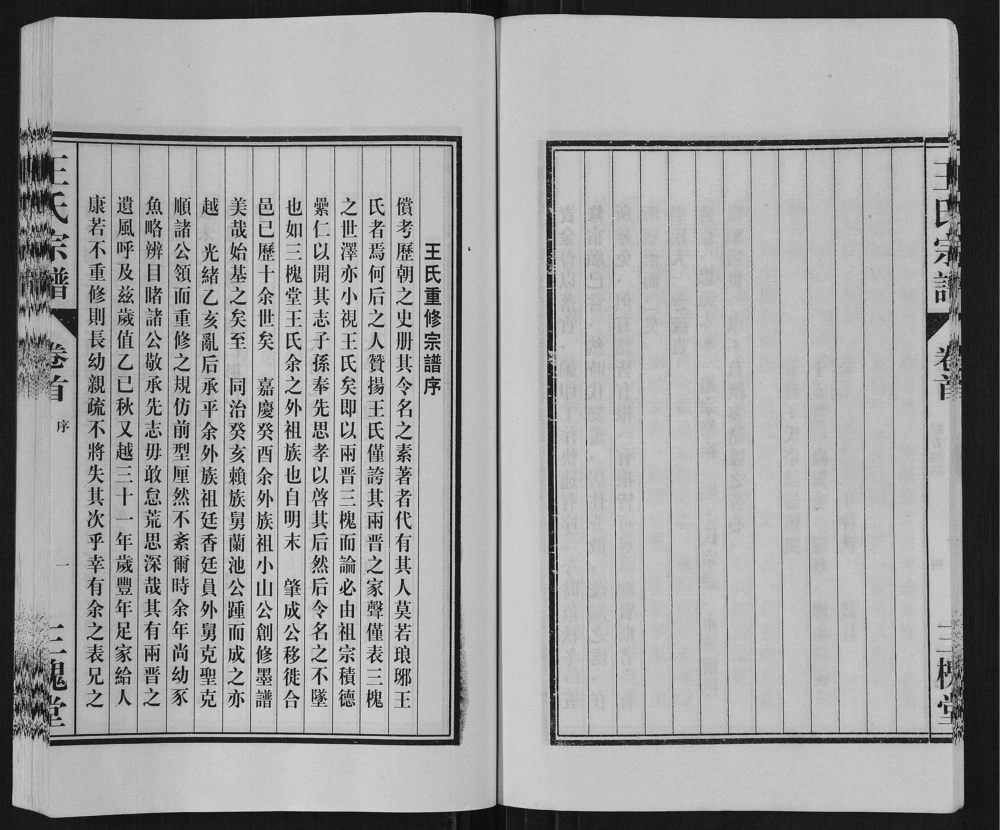 王氏宗譜
卷首
三槐堂
王氏重修宗譜序
償考歷朝之史册其令名之素著者代有其人莫若琅琊王
氏者焉何后之人贊揚王氏僅誇其兩晋之家聲僅表三槐
之世澤亦小視王氏矣即以兩晋三槐而論必由祖宗積德
纍仁以開其志子孫奉先思孝以啓其后然后令名之不墜
也如三槐堂王氏余之外祖族也自明末 肇成公移徙合
邑已歷十余世矣 嘉慶癸酉余外族祖小山公創修墨譜
美哉始基之矣至 同治癸亥賴族舅蘭池公踵而成之亦
越 光緒乙亥亂后承平余外族祖廷香廷員外舅克聖克
順諸公領而重修之規仿前型厘然不紊爾時余年尚幼豕
魚略辨目睹諸公敬承先志毋敢怠荒思深哉其有兩晋之
遺風呼及兹歲值乙已秋又越三十一年歲豐年足家給人
康若不重修則長幼親疏不將失其次乎幸有余之表兄之
王氏宗譜
卷首
序
一
三槐堂